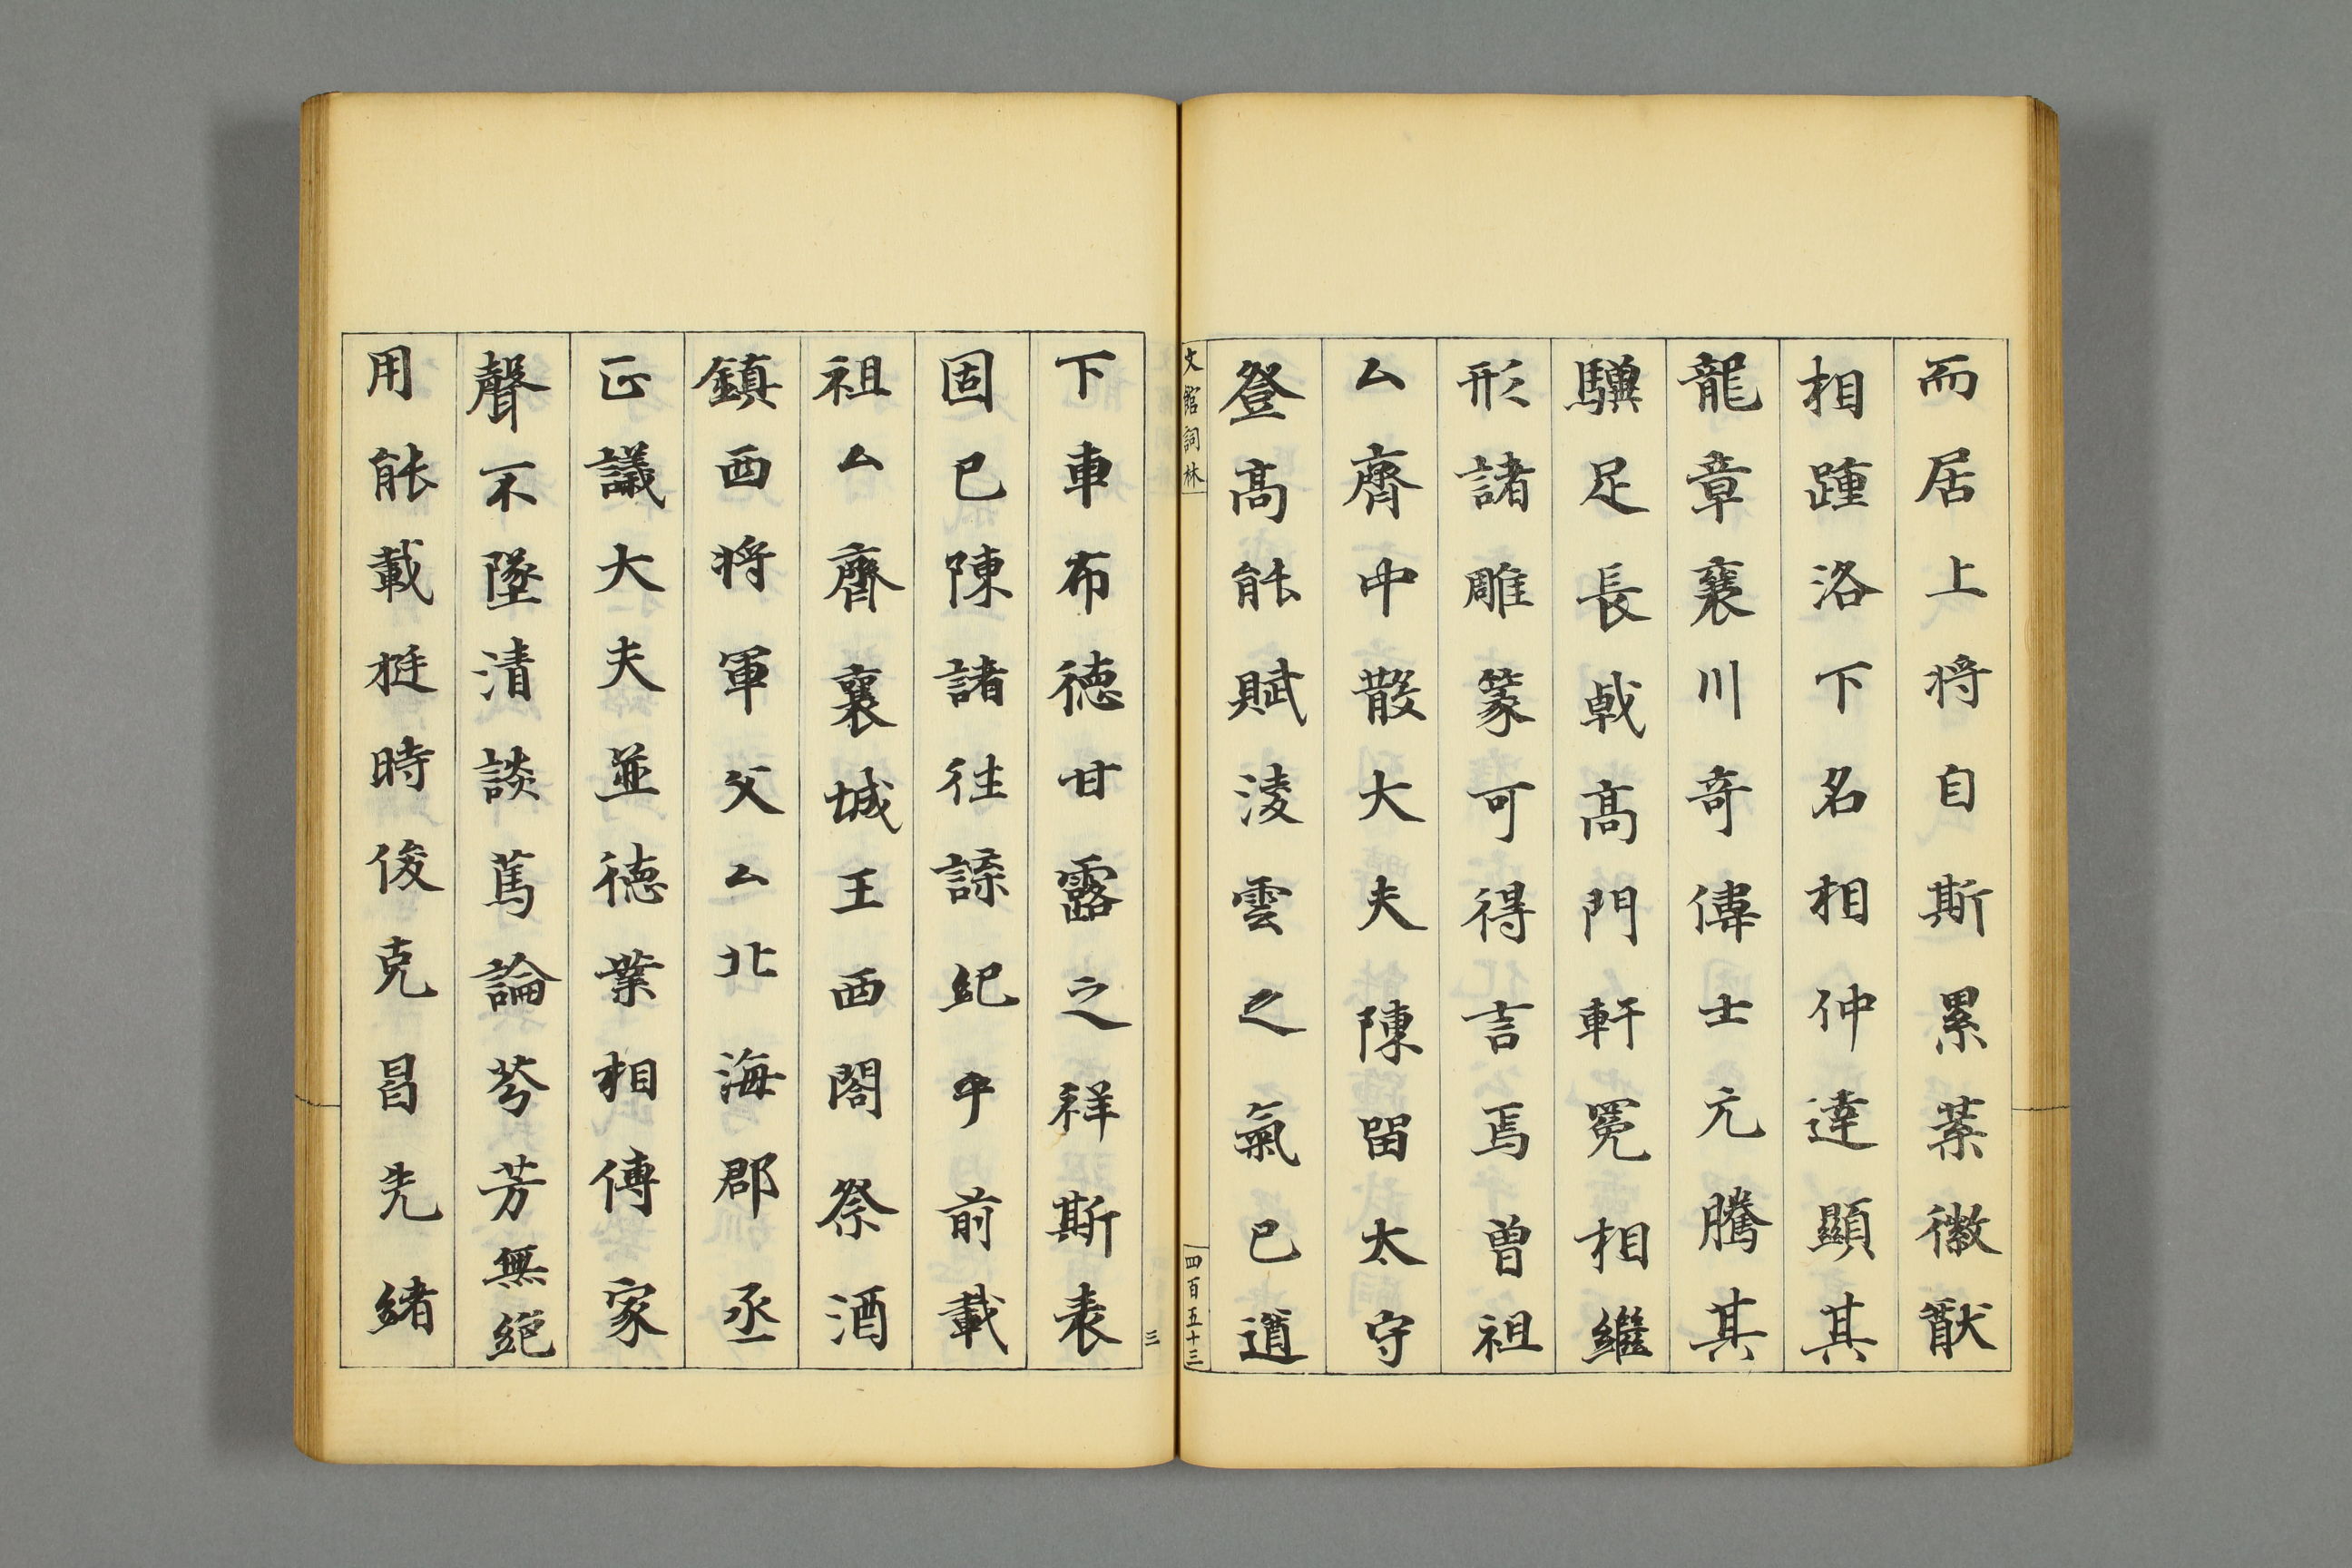 而居上将自斯累葉徽猷
相踵洛下名相仲達顯其
龍章襄川奇偉國士元騰其
驥足長戟高門軒冕相繼
形諸雕篆可得言焉曾祖
厶齊中散大夫陳留太守
登高能賦淩雲之氣已遒
文館詞林
四百五十三
三
下車布德甘露之祥斯表
固已陳諸往諜紀乎前載
祖厶齊襄城王西閤祭酒
鎮西将軍父厶北海郡丞
正議大夫並德業相傳家
聲不墜清談蔿論芩芳無絕
用能載挺時俊克昌先緒